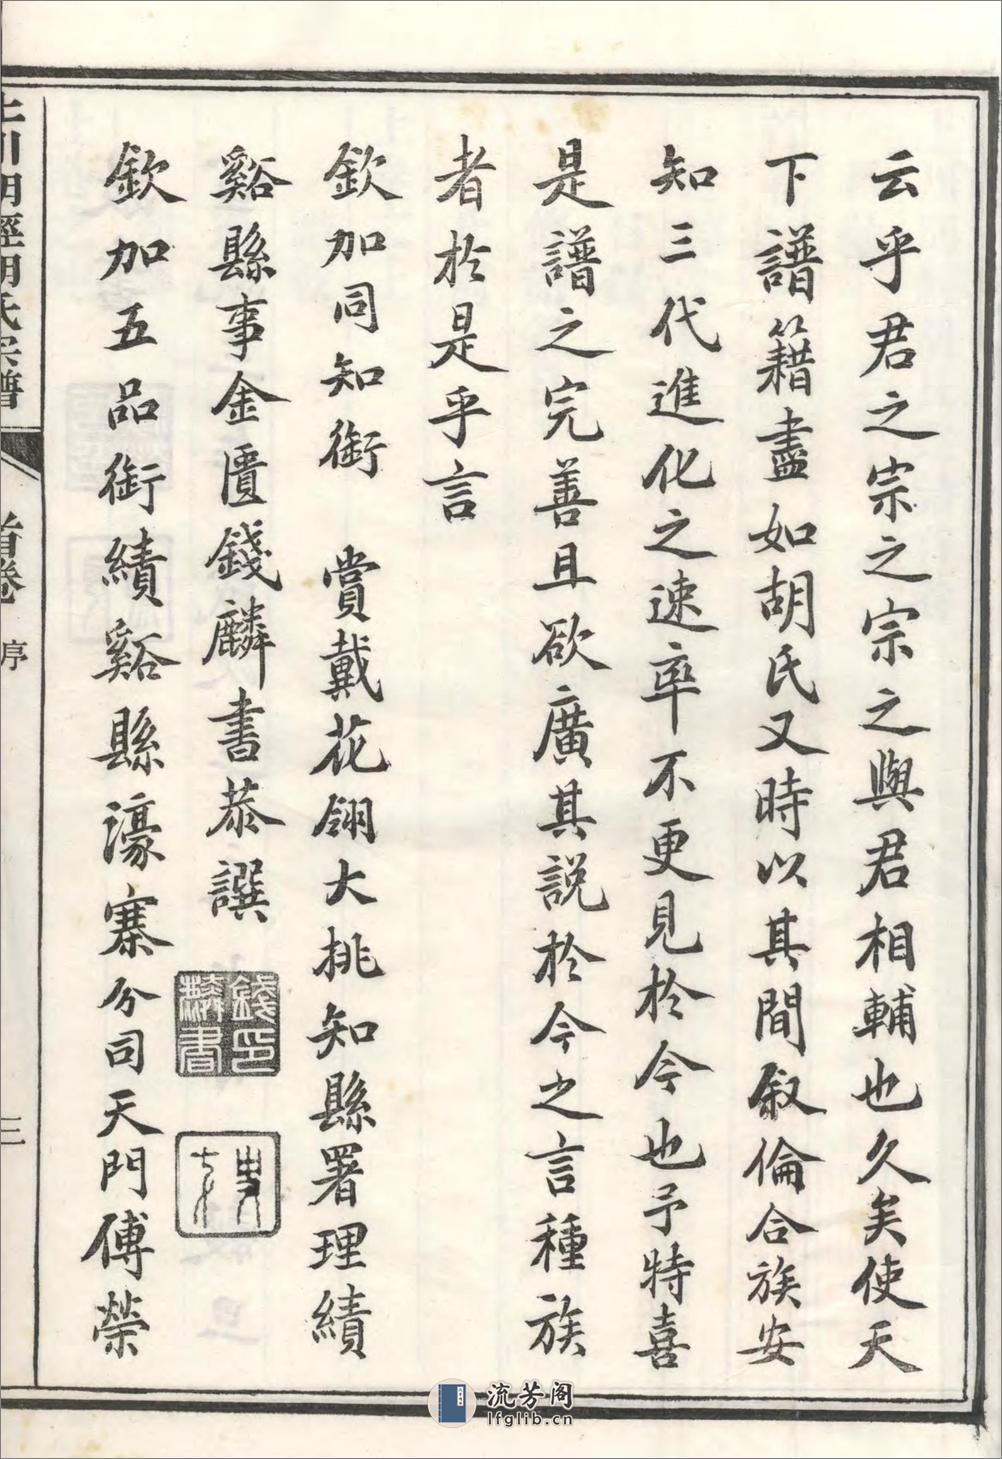 云乎君之宗之宗之與君相輔也久矣使天
下譜籍盡如胡氏又時以其間叙倫合族安
知三代進化之速率不更見於今也予特喜
是譜之完善且欲廣其說於今之言種族
者於是乎言
欽加同知銜 賞戴花翎大挑知縣署理績
谿縣事金匱錢麟書恭譔
錢印麟書
欽加五品銜績谿縣濠寨分司天門傅榮
上川明經胡氏宗譜 首卷 序 三
流芳阁
lfglib.cn